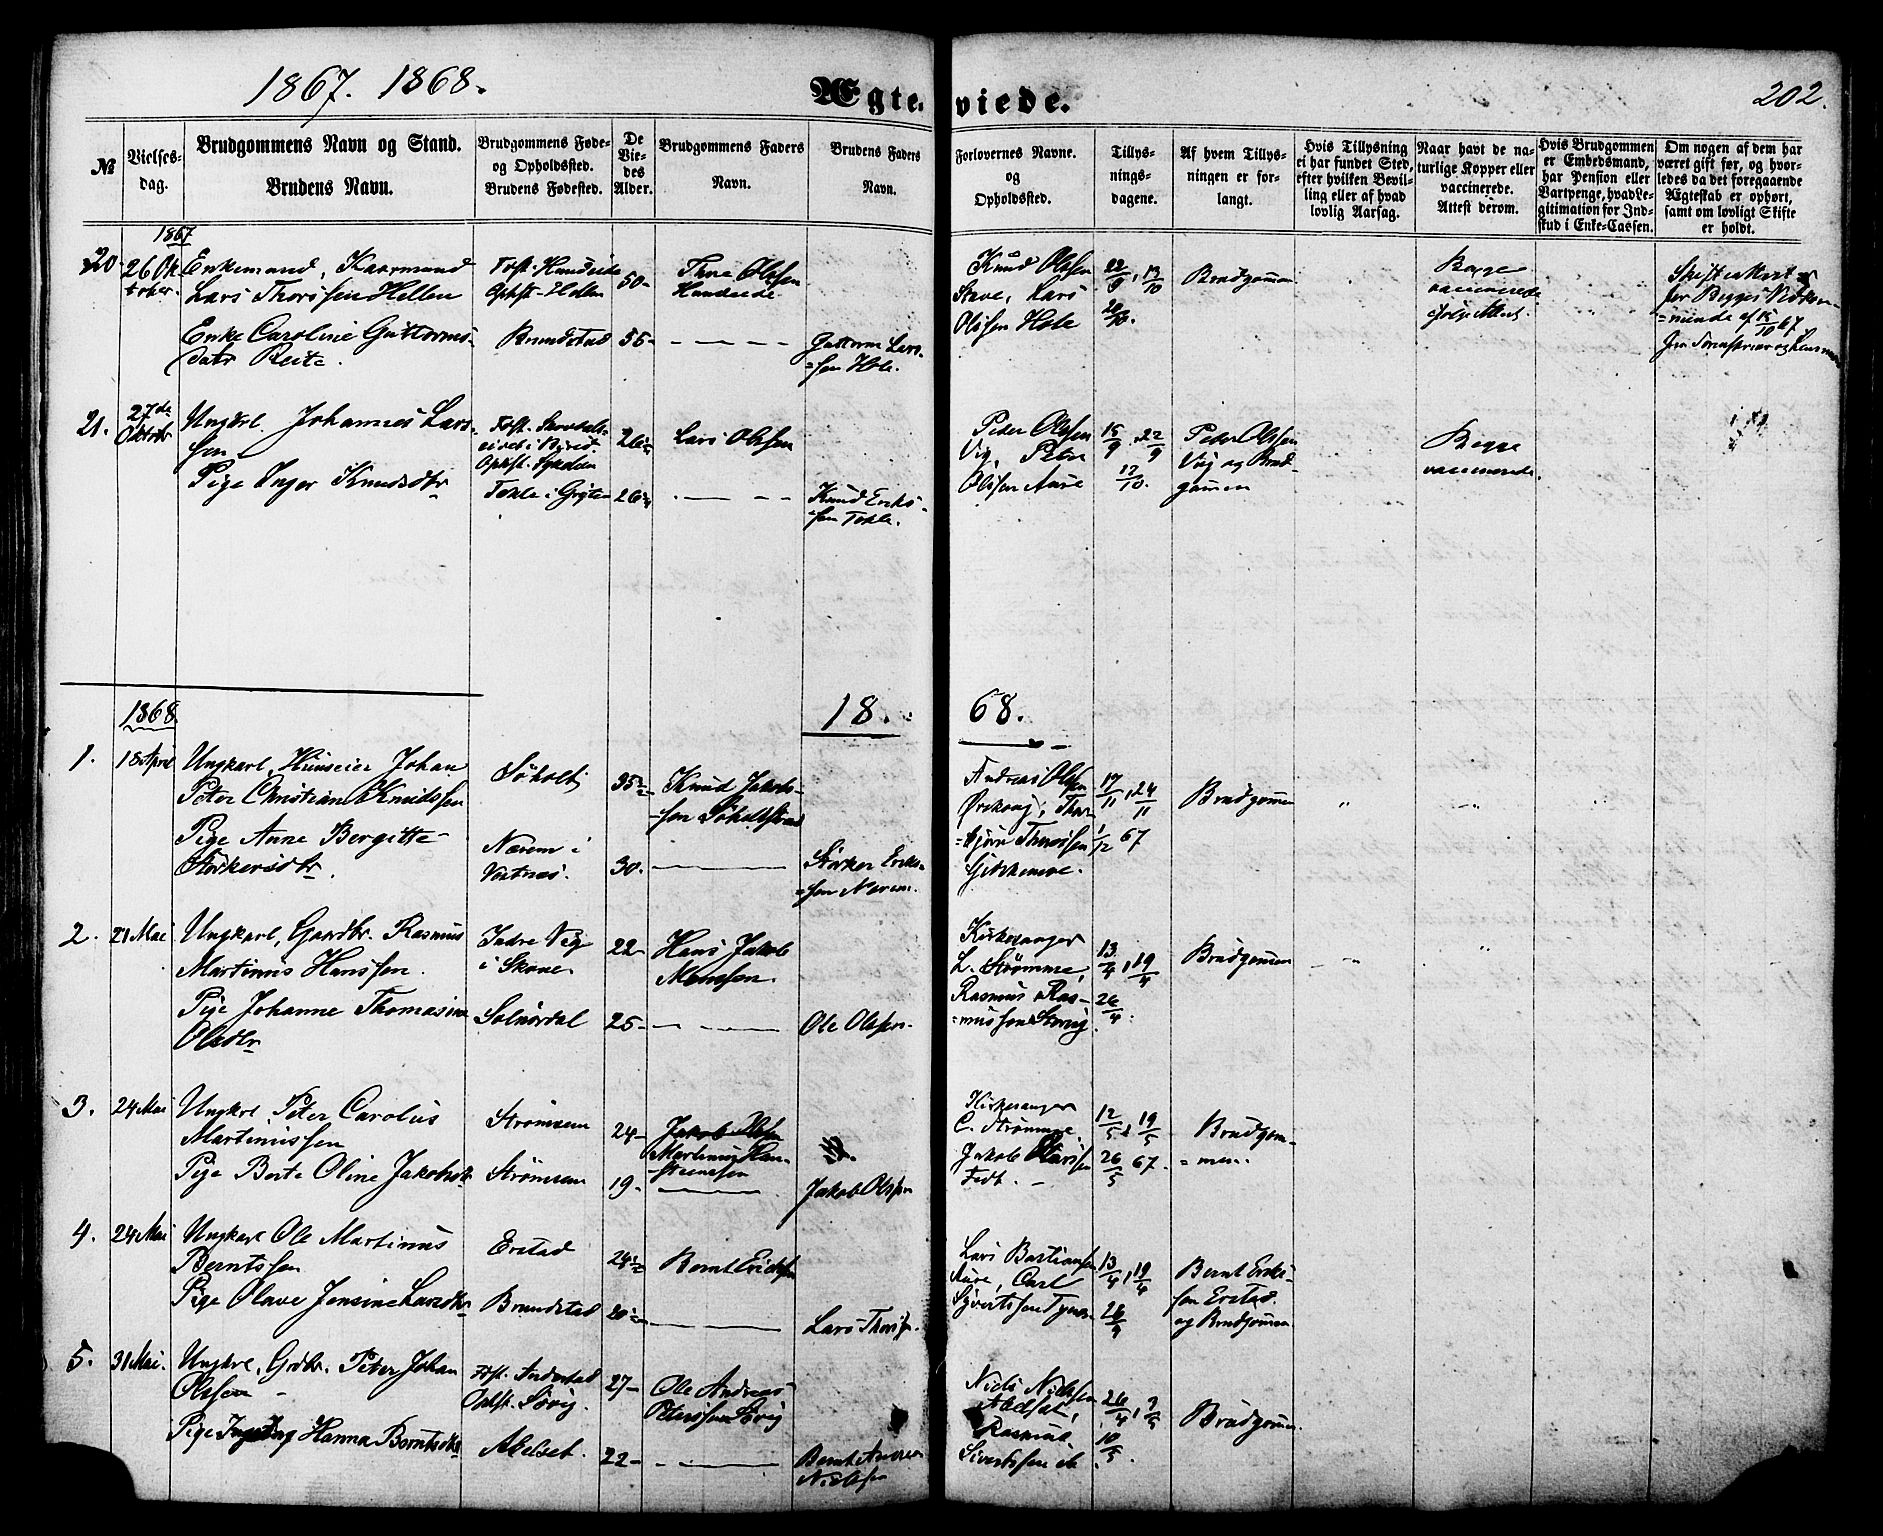 1867. 1868.
Ægte-viede.
202.
№
Vielses-dag.
Brudgommens Navn og Stand.
Brudens Navn.
Brudgommens Føde- og Opholdssted.
Brudens Fødested.
De Viedes Alder.
Brudgommens Faders Navn.
Brudens Faders Navn.
Forlovernes Navne. og Opholdssted.
Tillysningsdagene.
Af hvem Tillysningen er forlangt.
Hvis Tillysning ei har fundet Sted, efter hvilken Bevilling eller af hvad lovlig Aarsag.
Naar havt de naturlige Kopper eller vaccinerede. Attest derom.
Hvis Brudgommen er Embedsmand, har Pension eller Vartpenge, hvad Legitimation for Indskud i Enke-Cassen.
Om nogen af dem har været gift før, og hvorledes da det foregaaende Ægteskab er ophørt, samt om lovligt Skifte er holdt.
1867
20 26 Oktober.
Enkemand,
Lars Thorssen Hellen
Enke Caroline Guttorms-
datr Reite.
Fost. Hundeide
Ophst. Hellen
Brundstad
50
55
Thore Olssen
Hundeide
Guttorm Lars-
sen Hole.
Knud Olssen
Stave, Lars
Olssen Hole
22/9, 13/10
20/10.
Brudgommen
Begge
vaccinerede
ifølge Attest.
21. 27de Oktobr
Ungkrl. Johannes Lars-
sen
Pige Inger Knudsdtr
26
26
Lars Olssen
Knud Eriks-
sen Tokle.
Peder Olssen
Vig, Peter
Olssen Aure
15/9, 22/9
17/10.
Peder Olssen
Vig og Brud-
gommen
Begge
vaccinerede.
1868.
18. 68.
1. 18 April
Ungkarl, Huuseier Johan
Peter Christian Knudssen
Pige Anne Bergitte
Størkersdtr.
Søholt
Nærem i
Vatnes.
35
30.
Knud Jakobs-
sen Søholtstrand
Størker Eriks-
sen Nærem.
Andreas Olssen
Ørskoug, Thor-
bjørn Thorssen
17/11, 24/11
1/12 67
Brudgommen
2. 21 Mai
Ungkarl, Gaardbr. Rasmus
Martinus Hanssen.
Pige Johanne Thomasine
Olsdtr
Indre Vig
i Skoue
Solnørdal
22
25
Hans Jakob
Monssen
Ole Olssen.
Kirkesanger
L. Strømme,
Rasmus Ras-
mussen Søvig.
13/4, 19/4
26/4.
Brudgommen
3. 24 Mai
Ungkrl Peter Carolus
Martinussen
Pige Berte Oline Jakobsdtr
Strømmen
Strømmen
24
19.
Jakob Olssen
Martinus Han-
Jakob Olssen
Kirkesanger
C. Strømme,
Jakob Larssen
Fedt.
12/5, 19/5
26/5 67.
Brudgom-
men.
4. 24 Mai
Ungkarl Ole Martinus
Berntssen
Pige Olave Jensine Larsdtr
Erstad
Brundstad
24
20
Bernt Erikssen
Lars Thorssen.
Lars Bastianssen
Aure, Carl
Syvertssen Tynes
13/4, 19/4
26/4
Bernt Eriks-
sen Erstad.
og Brudgommen
5. 31 Mai.
Ungkrl. Grdbr. Peter Johan
Olssen
Pige Ingeborg Hanna Berntsdtr
Fost. Andestad
Ophst. Søvig.
Akelset.
27
22
Ole Andreas
Peterssen Søvig
Bernt Andreas
Nilssen
Niels Nielssen
Rasmus
Sivertssen
26/4, 3/5
10/5
Brudgommen.